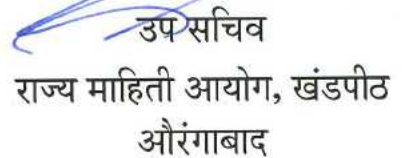 उप सचिव
राज्य माहिती आयोग, खंडपीठ
औरंगाबाद